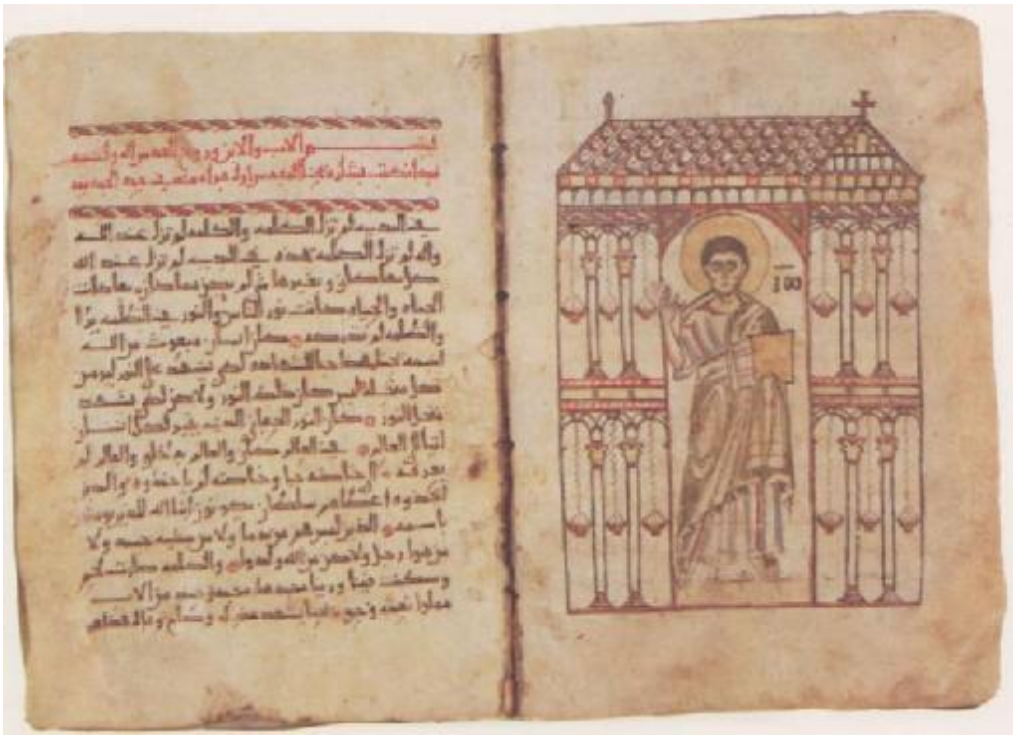 بسم الاب والابن وروح القدس اله واحد
نكتب بشارة
في البديه لم تزل الكلمه والكلمه لم تزل عند الله
واله لم تزل الكلمه هذه في البديه لم تزل عند الله
كل بها كان وبغيرها شي لم يكن مما كان بها كانت
الحياه والحياه كانت نور الناس والنور في الظلمه يرا
والظلمه لم تدركه كان انسان مبعوث من الله
اسمه هذا جا للشهاده لكي يشهد على النور ليومن
كل ليس كان ذلك النور ولكن لكي يشهد
النور كان النور الذي ينير لكل انسان
الى العالم في العالم كان والعالم به خلق والعالم لم
يعرفه الى خاصته جا وخاصته لم ياخذوه والذين
اخذوه اعطاهم سلطان الله الذين يومنون
باسمه الذين ليس هم من دم ولا من جسد ولا
من هوا رجل ولكن من الله ولدوا والكلمه صارت لحم
وسكنت فينا مجدها مجد من الاب
نعمه وحق يشهد وصاح وقال